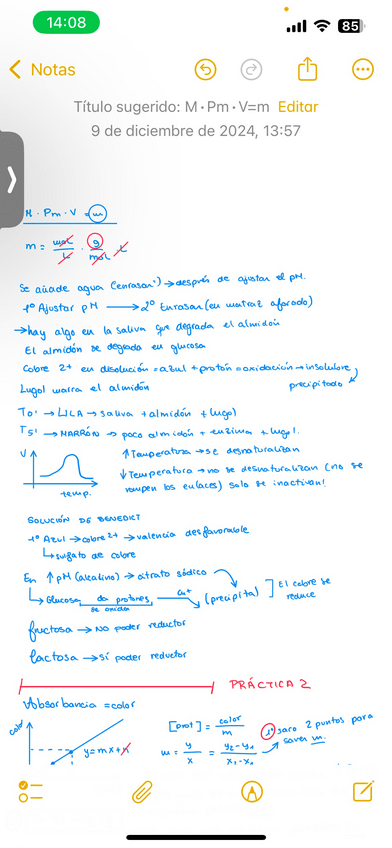 14:08
85
Notas
Título sugerido: M·Pm·V=m Editar
9 de diciembre de 2024, 13:57
M · Pm · V = m
m = mol/L · g/mol · L
Se añade agua (enrasar) → después de ajustar el pH.
1º Ajustar pH → 2º Enrasar (en matraz aforado)
→ hay algo en la saliva que degrada el almidón
El almidón se degrada en glucosa
Cobre 2+ en disolución = azul + protón = oxidación → insoluble
precipitado
Lugol marra el almidón
T0' → LILA → saliva + almidón + lugol
T5' → MARRÓN → poco almidón + enzima + lugol.
V
temp.
↑ Temperatura → se desnaturalizan
↓ Temperatura → no se desnaturalizan (no se
rompen los enlaces) solo se inactivan!
SOLUCIÓN DE BENEDICT
1º Azul → cobre 2+ → valencia desfavorable
↳ sulfato de cobre
En ↑ pH (alcalino) → citrato sódico
↳ Glucosa da protones → Cu+ (precipita)
se oxida
El cobre se
reduce
fructosa → NO poder reductor
lactosa → sí poder reductor
PRÁCTICA 2
Absorbancia = color
color
y = mx + n
[prot] = color/m
m = y/x = y2-y1/x2-x1
1º saco 2 puntos para
saver m.